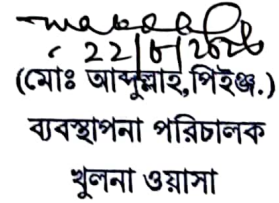 (মোঃ আব্দুল্লাহ, পিইঞ্জ.)
ব্যবস্থাপনা পরিচালক
খুলনা ওয়াসা